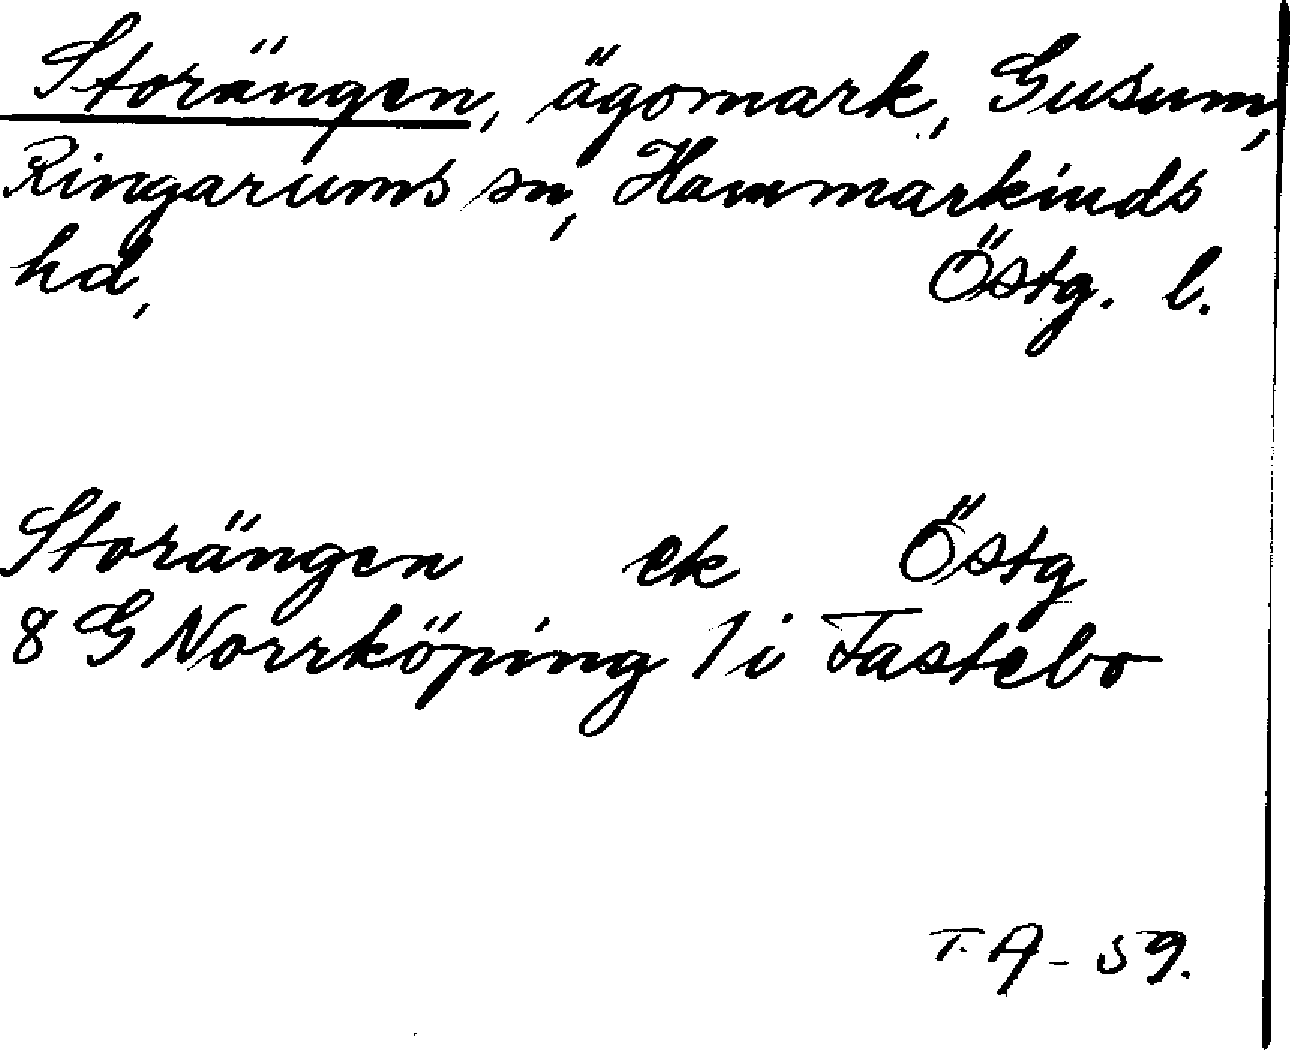 Storängen, ägomark, Gusum,
Ringarums sn, Hammarkinds
hd, Östg. l.
Storängen ek Östg
8 G Norrköping 1 i Fastebo
T. A - 59.